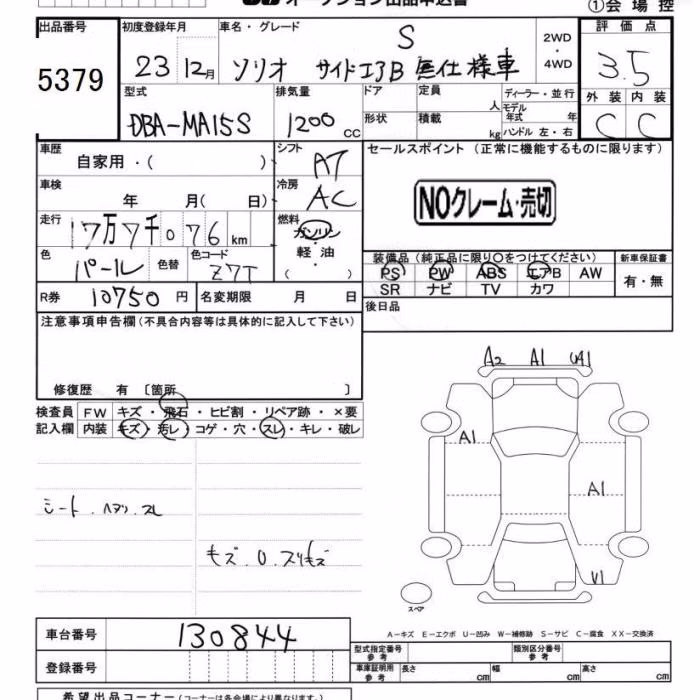 オークション出品申込書
①会場控
出品番号
5379
初度登録年月
23 12月
車名・グレード
S
ソリオ サイドエアB 無仕様車
2WD
・
4WD
評価点
3.5
外装 内装
C C
型式
DBA-MA15S
排気量
1200 cc
ドア
形状
定員 人
積載 kg
ディーラー・並行
モデル年式 年
ハンドル 左・右
車歴
自家用・( )
シフト
AT
セールスポイント (正常に機能するものに限ります)
NOクレーム・売切
車検
年 月( 日)
冷房
AC
走行
17万7千076 km
燃料
ガソリン
軽油
( )
色
パール
色替
色コード
Z7T
装備品 (純正品に限り〇をつけてください)
PS PW ABS エアB AW
SR ナビ TV カワ
新車保証書
有・無
R券 10750 円
名変期限 月 日
後日品
注意事項申告欄 (不具合内容等は具体的に記入して下さい)
修復歴 有 〔箇所 〕
検査員記入欄
FW キズ・飛石・ヒビ割・リペア跡・×要
内装 キズ・汚レ・コゲ・穴・スレ・キレ・破レ
A2 A1 UA1
A1
A1
U1
スペア
シート.ヘタリ.スレ
キズ.U.スリキズ
A-キズ E-エクボ U-凹み W-補修跡 S-サビ C-腐食 XX-交換済
車台番号
130844
登録番号
型式指定番号 参考
類別区分番号 参考
車庫証明用 参考
長さ cm 幅 cm 高さ cm
希望出品コーナー (コーナーは各会場により異なります。)